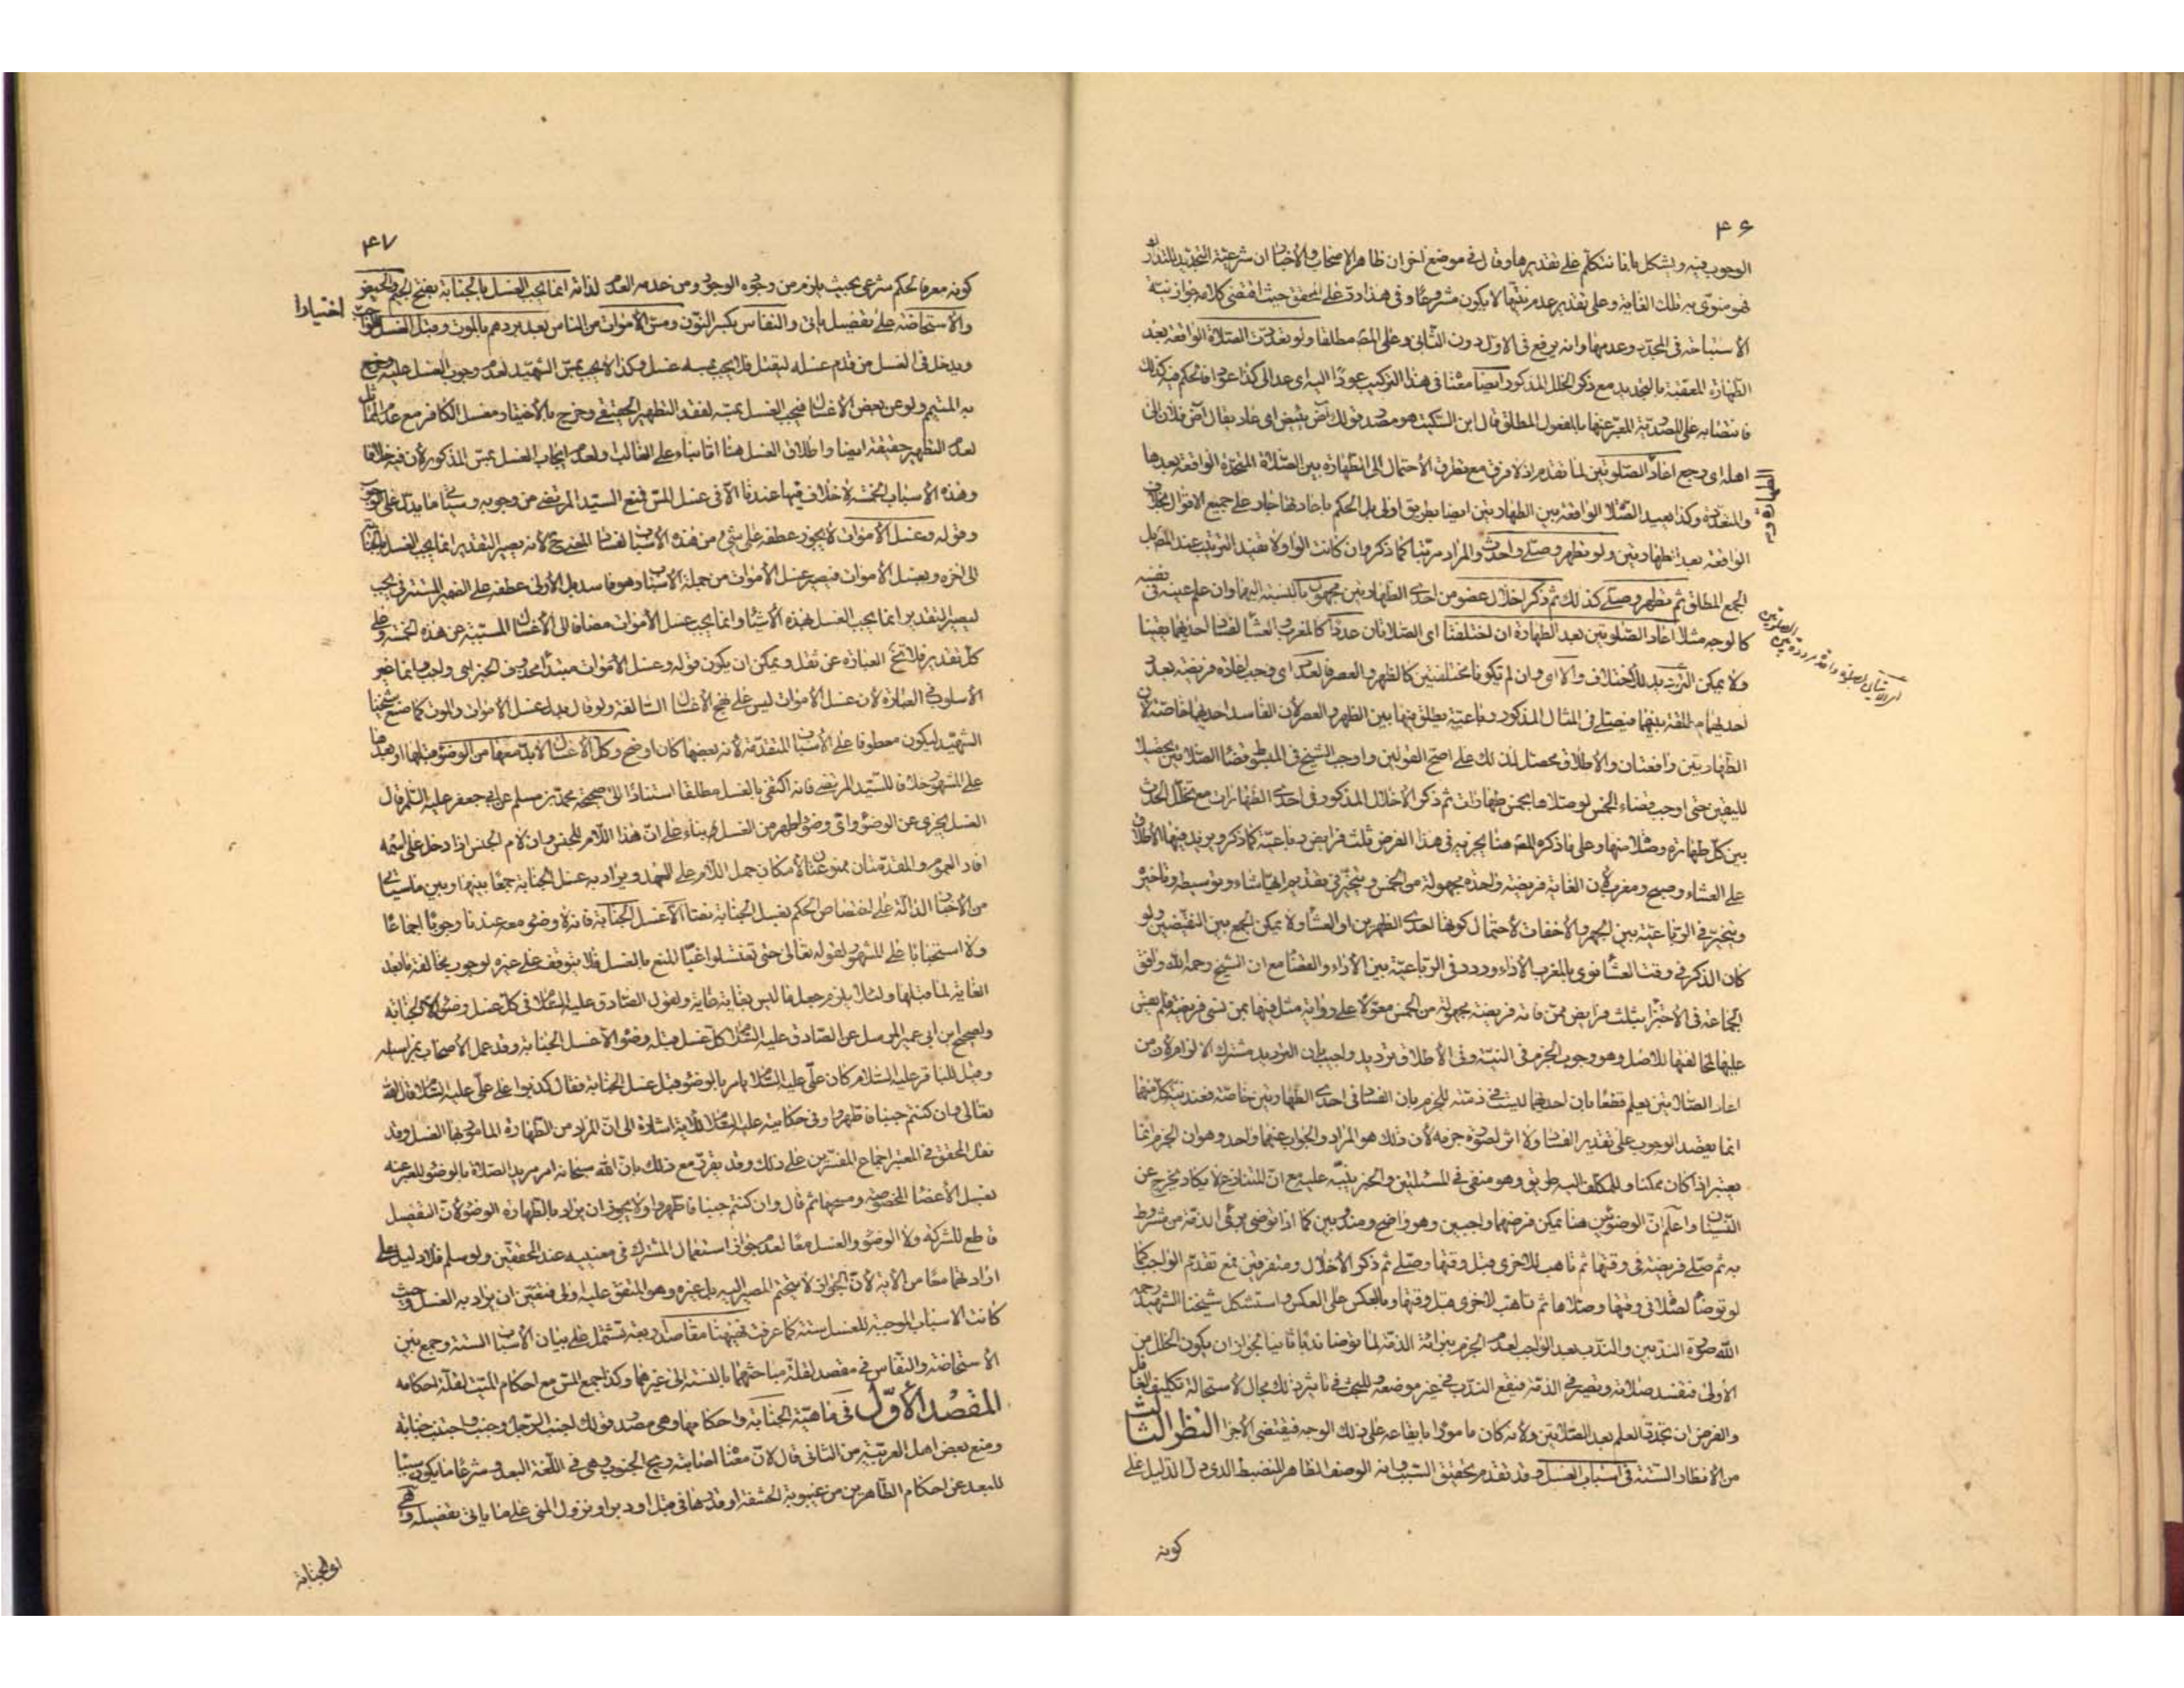 ۴۶
الوجوب فيه ويشكل بانا نتكلم على تقديرها وقال في موضع اخر ان ظاهر الاصحاب والأخبار ان شرعية التجديد للتدارك
فهو منوى به تلك الغاية وعلى تقدير عدم نيتها لا يكون مشروعًا وفى هذا رد على المحقق حيث اقتضى كلامه جواز نية
الاستباحة فى المجدد وعدمها وانه يرفع فى الاول دون الثانى وعلى المص مطلقا ولو تعددت الصلاة الواقعة بعد
الطهارة المعقبة بالتجديد مع ذكر الخلل المذكور ايضا معنا فى هذا التركيب عودًا اليه اى عد الى كذا عودا فالحكم فيه كذلك
فانتصابه على المصدرية المعبر عنها بالمفعول المطلق قال ابن السكيت هو مصدر قولك آض يئيض اى عاد يقال آض فلان الى
اهله اى رجع اعاد الصلوتين لما تقدم اذ لا فرق مع تطرق الاحتمال الى الطهارة بين الصلاة المتحدة الواقعة بعدها
والمتعددة وكذا يعيد الصلاة الواقعة بين الطهارتين ايضا بطريق اولى بل الحكم باعادتها جار على جميع الاقوال بخلاف
الواقعة بعد الطهارتين ولو تطهر وصلى واحدث والمراد مرتبًا كما ذكر وان كانت الواو لا تفيد الترتيب عند المص بل
الجمع المطلق ثم تطهر وصلى كذلك ثم ذكر اخلال عضو من احدى الطهارتين مجهولة بالنسبة اليهما وان علم عينه فى نفسه
كالوجه مثلا اعاد الصلوتين بعد الطهارة ان اختلفتا اى الصلاتان عددًا كالمغرب والعشاء لفساد احديهما يقينا
ولا يمكن الترديد للاختلاف والا اى وان لم تكونا مختلفتين كالظهر والعصر فالعدد اى وجب اعادة فريضة بعدد
احديهما مطلقة بينهما فيصلى فى المثال المذكور رباعية يطلق فيها بين الظهر والعصر لأن الفاسد احديهما خاصة لأن
الطهارتين رافعتان والاطلاق محصل لذلك على اصح القولين واوجب الشيخ فى المبسوط قضاء الصلاتين تحصيلا
لليقين حتى اوجب قضاء الخمس لو صلاها بخمس طهارات ثم ذكر الاخلال المذكور فى احدى الطهارات مع تخلل الحدث
بين كل طهارة وصلاة منها وعلى ما ذكره المص هنا يجزيه فى هذا الفرض ثلث فرايض رباعية كما ذكر ويزيد فيها الاطلاق
على العشاء وصبح ومغرب لأن الفايتة فريضة واحدة مجهولة من الخمس ويتخير فى تقديم ايها شاء وتوسيطه وتاخيره
ويتخير فى الرباعية بين الجهر والاخفات لاحتمال كونها احدى الظهرين او العشاء ولا يمكن الجمع بين النقيضين ولو
كان الذكر فى وقت العشاء نوى بالمغرب الاداء وردد فى الرباعية بين الاداء والقضاء مع ان الشيخ رحمه الله وافق
الجماعة فى الاجتزاء بثلث فرايض ممن فاته فريضة مجهولة من الخمس معولا على رواية مثل فيها بمن نسى فريضة فلم يعين
عليها لمخالفتها للاصل وهو وجوب الجزم فى النية وفى الاطلاق ترديد واجيب بان الترديد مشترك الالزام لأن من
اعاد الصلاتين يعلم قطعًا بان احديهما ليست فى ذمته للجزم بان الفساد فى احدى الطهارتين خاصة فعند نية كل منهما
انما يقصد الوجوب على تقدير الفساد ولا اثر لصورة جزمه لأن ذلك هو المراد والجواب عنهما واحد وهو ان الجزم انما
يعتبر اذا كان ممكنا وللمكلف اليه طريق وهو منفى فى المسئلتين والخبر ينبه عليه مع ان المتنازع لا يكاد يخرج عن
النسيان واعلم ان الوضوئين هنا يمكن فرضهما واجبين وهو واضح ومندوبين كما اذا توضى برئ الذمة من مشروط
به ثم صلى فريضة فى وقتها ثم تاهب للاخرى قبل وقتها وصلى ثم ذكر الاخلال ومتفرقين فمع تقدم الواجب كما
لو توضأ لصلاة فى وقتها وصلاها ثم تاهب لاخرى قبل وقتها وبالعكس على العكس واستشكل شيخنا الشهيد رحمه
الله صورة الندبين والمندب بعد الواجب لعدم الجزم ببرائة الذمة لما توضا ندبًا ثانيا لجواز ان يكون الخلل من
الأولى فتفسد صلاته وتصير فى الذمة فيقع الندب فى غير موضعه وللبحث فى تاثير ذلك مجال لاستحالة تكليف الغافل
والفرض ان تجدد العلم بعد الصلاتين ولانه كان مامورا بايقاعه على ذلك الوجه فيقتضى الاجزاء النظر الثالث
من الانظار الستة فى اسباب الغسل وقد تقدم تحقيق السبب وانه الوصف الظاهر المنضبط الذى دل الدليل على
كونه
۴۷
كونه معرفا لحكم شرعى بحيث يلزم من وجوده الوجود ومن عدمه العدم لذاته انما يجب الغسل بالجنابة بفتح الجيم والحيض
والاستحاضة على تفصيل ياتى والنفاس بكسر النون ومس الاموات من الناس بعد بردهم بالموت وقبل الغسل
اختيارا
ويدخل فى الغسل من قدم غسله ليقتل فلا يجب بمسه غسل وكذا لا يجب بمس الشهيد لعدم وجوب الغسل عليه وخرج
به المتيمم ولو عن بعض الاغسال فيجب الغسل بمسه لفقد التطهير الحقيقى وخرج بالاختيار مغسل الكافر مع عدم المماثل
لعدم التطهير حقيقة ايضا واطلاق الغسل هنا اما بناء على الغالب ولعدم ايجاب الغسل بمس المذكور لأن فيه خلافا
وهذه الأسباب الخمسة لا خلاف فيها عندنا الا فى غسل المس فمنع السيد المرتضى من وجوبه وسياتى ما يدل على وجوبه
وقوله وغسل الأموات لا يجوز عطفه على شىء من هذه الأسباب لفساد المعنى ح لأنه يصير التقدير انما يجب الغسل بالجنابة
الى اخره وبغسل الأموات فيصير غسل الأموات من جملة الأسباب وهو فاسد بل الأولى عطفه على الضمير المستتر فى يجب
ليصير التقدير انما يجب الغسل بهذه الأشياء وانما يجب غسل الأموات مضافا الى الأغسال المسببة عن هذه الخمسة وعلى
كل تقدير فلا تخ العبارة عن ثقل ويمكن ان يكون قوله وغسل الأموات مبتدأ محذوف الخبر اى واجب وانما غير
الأسلوب فى العبارة لأن غسل الأموات ليس على نهج الأغسال السالفة ولو قال بدل غسل الأموات والموت كما صنع شيخنا
الشهيد ليكون معطوفا على الأسباب المتقدمة لأنه بعضها كان اوضح وكل الأغسال لا بد معها من الوضوء قبلها او بعدها
على المشهور خلافا للسيد المرتضى فانه اكتفى بالغسل مطلقا استنادًا الى صحيحة محمد بن مسلم عن ابى جعفر عليه السلم قال
الغسل يجزى عن الوضوء واى وضوء اطهر من الغسل بناء على ان هذا اللام للجنس وان لام الجنس اذا دخل على اسم
افاد العموم والمقدمتان ممنوعتان لامكان حمل اللام على العهد ويراد به غسل الجنابة جمعًا بينهما وبين ما سياتى
من الأخبار الدالة على اختصاص الحكم بغسل الجنابة نصا الا غسل الجنابة فانه لا وضوء معه عندنا وجوبًا اجماعًا
ولا استحبابا على المشهور لقوله تعالى حتى تغتسلوا غيا المنع بالغسل فلا يتوقف على غيره لوجوب مخالفة ما بعد
الغاية لما قبلها ولئلا يلزم جعل ما ليس بغاية غاية ولقول الصادق عليه السلام فى كل غسل وضوء الا الجنابة
ولصحيح ابن ابى عمير المرسل عن الصادق عليه السلام كل غسل قبله وضوء الا غسل الجنابة وقد عمل الأصحاب بمراسيله
وقيل للباقر عليه السلام كان على عليه السلام يامر بالوضوء قبل غسل الجنابة فقال كذبوا على على عليه السلام قال الله
تعالى وان كنتم جنبا فاطهروا وفى حكايته عليه السلام للاية اشارة الى ان المراد من الطهارة المامور بها الغسل وقد
نقل المحقق فى المعتبر اجماع المفسرين على ذلك وقد يقرر مع ذلك بان الله سبحانه امر مريد الصلاة بالوضوء المعبر عنه
بغسل الأعضاء المخصوصة ومسحها ثم قال وان كنتم جنبا فاطهروا ولا يجوز ان يراد بالطهارة الوضوء لأن التفصيل
قاطع للشركة ولا الوضوء والغسل معا لعدم جواز استعمال المشترك فى معنييه عند المحققين ولو سلم فلا دليل على
ارادتهما معًا من الاية لأن الجواز لا يحتم المصير اليه بل غيره وهو المتفق عليه اولى فتعين ان يراد به الغسل وحيث
كانت الأسباب الموجبة للغسل ستة كما عرفت فههنا مقاصد اربعة تشتمل على بيان الأسباب الستة وجمع بين
الاستحاضة والنفاس فى مقصد لقلة مباحثهما بالنسبة الى غيرهما وكذا جمع المس مع احكام الميت لقلة احكامه
المقصد الأول فى ماهية الجنابة واحكامها وهى مصدر قولك اجنب الرجل وجنب واجتنب جنابة
ومنع بعض اهل العربية من الثانى قال لأن معناه اصابته ريح الجنوب وهى فى اللغة البعد وشرعًا ما يكون سببًا
للبعد عن احكام الطاهرين من غيبوبة الحشفة او قدرها فى قبل او دبر او نزول المنى على ما ياتى تفصيله وهى
اى الجنابة